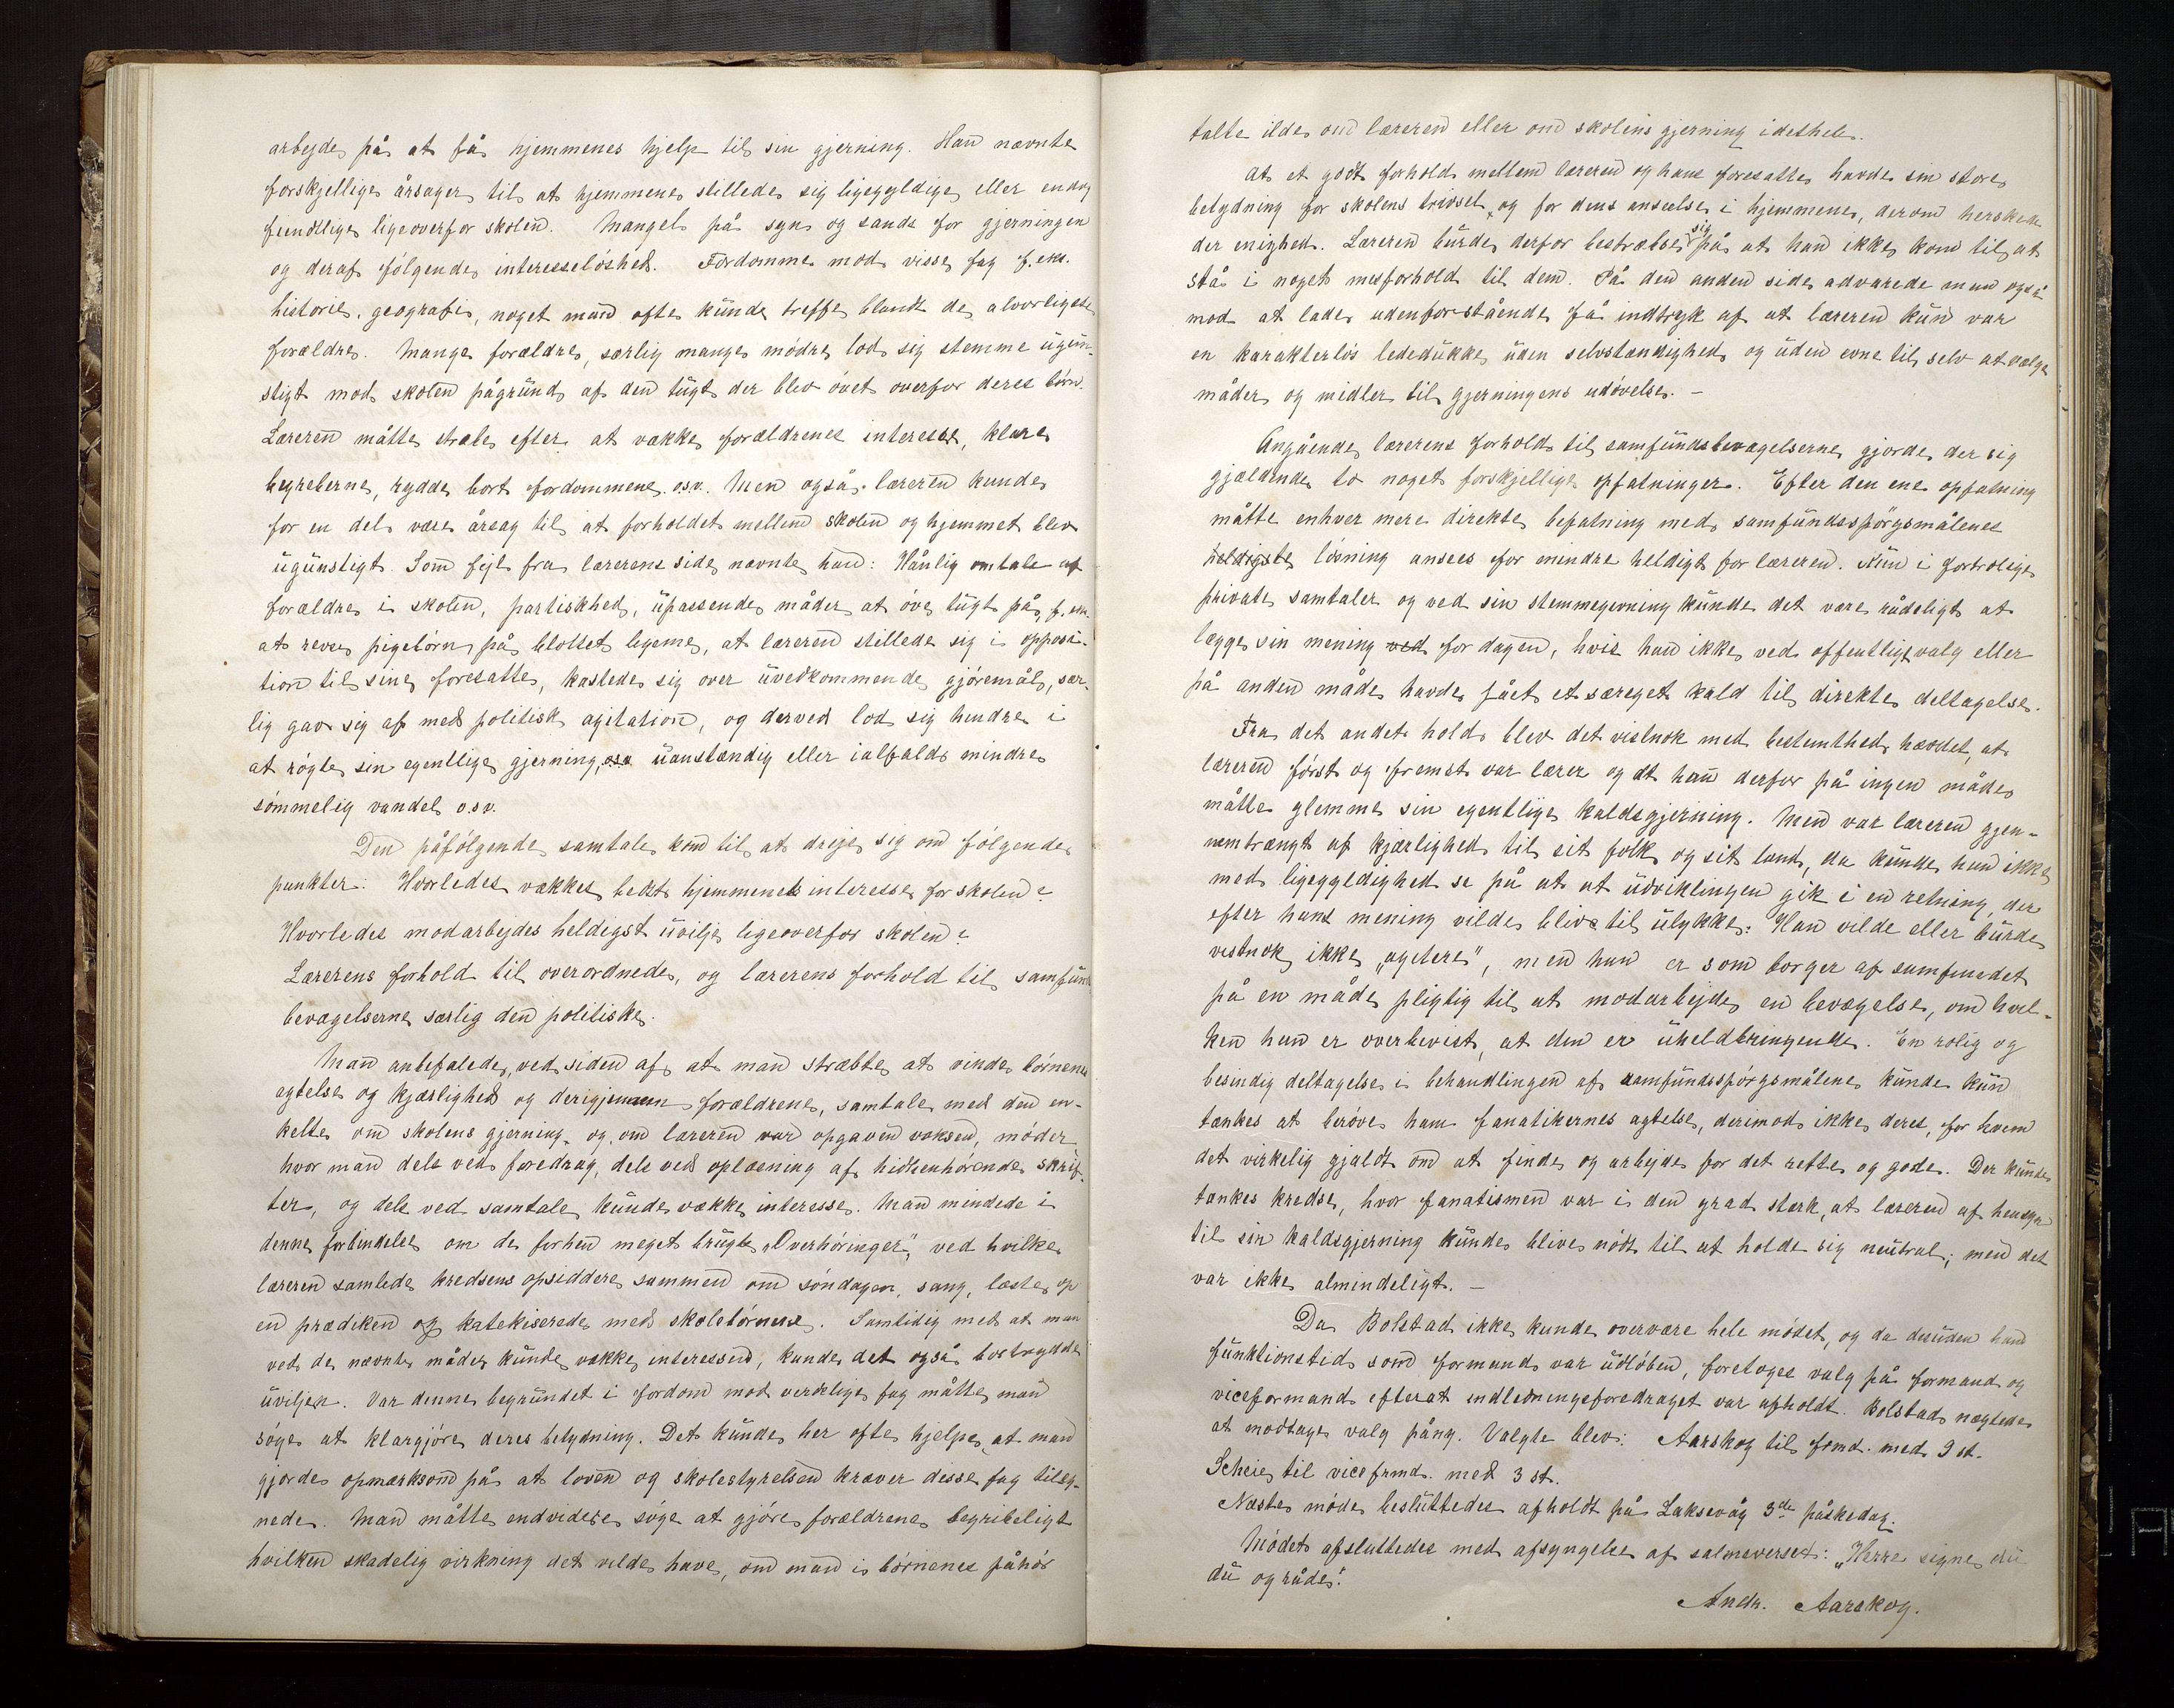 arbejde på at få hjemmenes hjelp til sin gjerning. Han nævnte
forskjellige årsager til at hjemmene stillede sig ligegyldige eller endog
fiendtlige ligeoverfor skolen. Mangel på syn og sands for gjerningen
og deraf følgende interesseløshed. Fordomme mod visse fag f. eks.
historie, geografi, noget man ofte kunde treffe blandt de alvorligste
forældre. Mange forældre, særlig mange mødre lod sig stemme ugun-
stigt mod skolen pågrund af den tugt der blev øvet overfor deres børn.
Læreren måtte stræbe efter at vække forældrenes interesse, klare
begreberne, rydde bort fordommene o.s.v. Men også læreren kunde
for en del være årsag til at forholdet mellem skolen og hjemmet blev
ugunstigt. Som fejl fra lærerens side nævnte han: Hånlig omtale af
forældre i skolen, partiskhed, upassende måder at øve tugt på, f. eks.
at reve pigebørn på blottet legeme, at læreren stillede sig i opposi-
tion til sine foresatte, kastede sig over uvedkommende gjøremål, sær-
lig gav sig af med politisk agitation, og derved lod sig hindre i
at røgte sin egentlige gjerning, osv. uanstændig eller ialfald mindre
sømmelig vandel o.s.v.
Den påfølgende samtale kom til at dreje sig om følgende
punkter: Hvorledes vækkes bedst hjemmenets interesse for skolen?
Hvorledes modarbejdes heldigst uvilje ligeoverfor skolen?
Lærerens forhold til overordnede, og lærerens forhold til samfunds
bevægelserne særlig den politiske.
Man anbefalede, ved siden af at man stræbte at vinde børnenes
agtelse og kjærlighed og derigjennem forældrene, samtale med den en-
kelte om skolens gjerning, og om læreren var opgaven voksen, møder
hvor man dels ved foredrag, dels ved oplæsning af hidhenhørende skrif-
ter, og dels ved samtale kunde vække interesse. Man mindede i
denne forbindelse om de forhen meget brugte „Overhøringer", ved hvilke
læreren samlede kredsens opsiddere sammen om søndagen, sang, læste op
en prædiken og katekiserede med skolebørnene. Samtidig med at man
ved de nævnte måder kunde vække interessen, kunde det også bortrydde
uviljen. Var denne begrundet i fordom mod verdslige fag måtte man
søge at klargjøre deres betydning. Det kunde her ofte hjelpe, at man
gjorde opmærksom på at loven og skolestyrelsen kræver disse fag tileg-
nede. Man måtte endvidere søge at gjøre forældrene begribeligt
hvilken skadelig virkning det vilde have, om man i børnenes påhør
talte ilde om læreren eller om skolens gjerning idethele.
At et godt forhold mellem læreren og hans foresatte havde sin store
betydning for skolens trivsel, og for dens anseelse i hjemmene, derom herskede
der enighed. Læreren burde derfor bestræbe sig på at han ikke kom til at
stå i noget misforhold til dem. På den anden side advarede man også
mod at lade udenforstående få indtryk af at læreren kun var
en karakterløs lededukke uden selvstændighed og uden evne til selv at vælge
måder og midler til gjerningens udøvelse. —
Angående lærerens forhold til samfundsbevægelserne gjorde der sig
gjældende to noget forskjellige opfatninger. Efter den ene opfatning
måtte enhver mere direkte befatning med samfundsspørgsmålenes
heldigste løsning ansees for mindre heldigt for læreren. Kun i fortrolige
private samtaler og ved sin stemmegivning kunde det være rådeligt at
lægge sin mening ved for dagen, hvis han ikke ved offentlige valg eller
på anden måde havde fået et særeget kald til direkte deltagelse.
Fra det andet hold blev det vistnok med bestemthed hævdet, at
læreren først og fremst var lærer og at han derfor på ingen måde
måtte glemme sin egentlige kaldsgjerning. Men var læreren gjen-
nemtrængt af kjærlighed til sit folk og sit land, da kunde han ikke
med ligegyldighed se på at at udviklingen gik i en retning, der
efter hans mening vilde blive til ulykke: Han vilde eller burde
vistnok ikke „agitere", men han er som borger af samfundet
på en måde pligtig til at modarbejde en bevægelse, om hvil-
ken han er overbevist, at den er uheldbringende. En rolig og
besindig deltagelse i behandlingen af samfundsspørgsmålene kunde kun
tænkes at berøve ham fanatikernes agtelse, derimod ikke deres, for hvem
det virkelig gjaldt om at finde og arbejde for det rette og gode. Der kunde
tænkes kredse, hvor fanatismen var i den grad stærk, at læreren af hensyn
til sin kaldsgjerning kunde blive nødt til at holde sig neutral; men det
var ikke almindeligt. —
Da Bolstad ikke kunde overvære hele mødet, og da desuden hans
funktionstid som formand var udløben, foretoges valg på formand og
viceformand efterat indledningsforedraget var afholdt. Bolstad nægtede
at modtage valg påny. Valgte blev: Aarskog til formd. med 9 st.
Scheie til vicefrmd. med 3 st.
Næste møde besluttedes afholdt på Laksevåg 3de påskedag.
Mødet afsluttedes med afsyngelse af salmeverset: „Herre signe du
du og råde".
Andr. Aarskog.